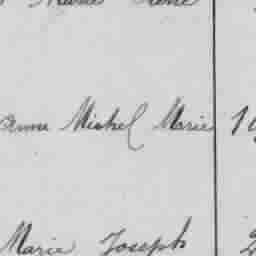 Anne Michel Marie 19
Marie Joseph 2